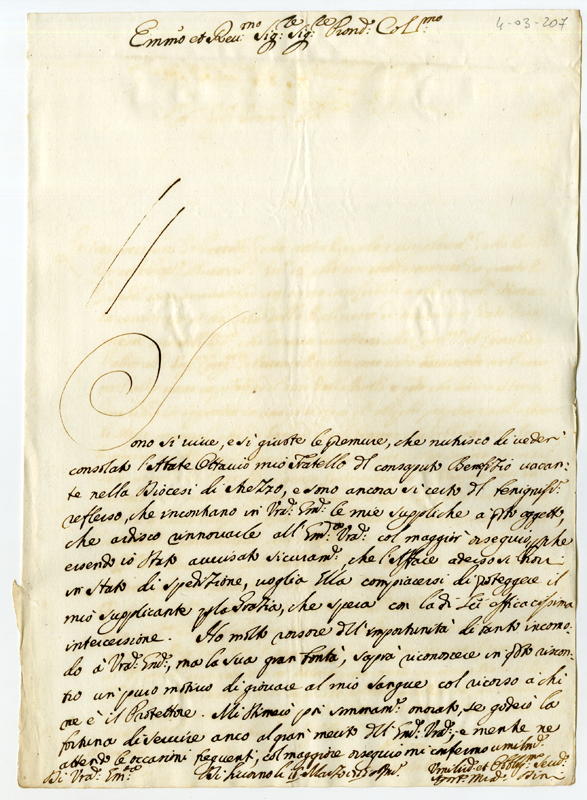 4-03-207
Emmo et Reu:mo Sig:re Sig:re Prond: Col:mo
Sono si viue, e si giuste le premure, che nutrisco di veder
consolato l'Abate Ottauio mio Fratello del consaputo Benefitio vacan-
te nella Diocesi di Arezzo, e sono ancora si certo del benigniss:
reflesso, che incontrano in Vra: Em: le mie suppliche a qto oggetto,
che ardisco rinnouarle all' Em: Vra: col maggior ossequio, perche
essendo io stato auuisato sicuram:, che l'affare adesso si troui
in stato di spedizione, voglia Ella compiacersi di proteggere il
mio supplicante per la Grazia, che spera con la di Lei efficacissima
intercessione. Ho molto rossore dell' importunità di tanto incomo-
do a Vra: Em:, ma la sua gran bontà, saprà riconoscere in qto rincon-
tro un puro motiuo di giouare al mio sangue col ricorso a chi
ne è il Protettore. Mi stimerò poi sommam: onorato, se goderò la
fortuna di seruire anco al gran merito dell' Em: Vra:, e mentre ne
attendo le occasioni frequenti, col maggiore ossequio mi confermo
Di Vra: Em: